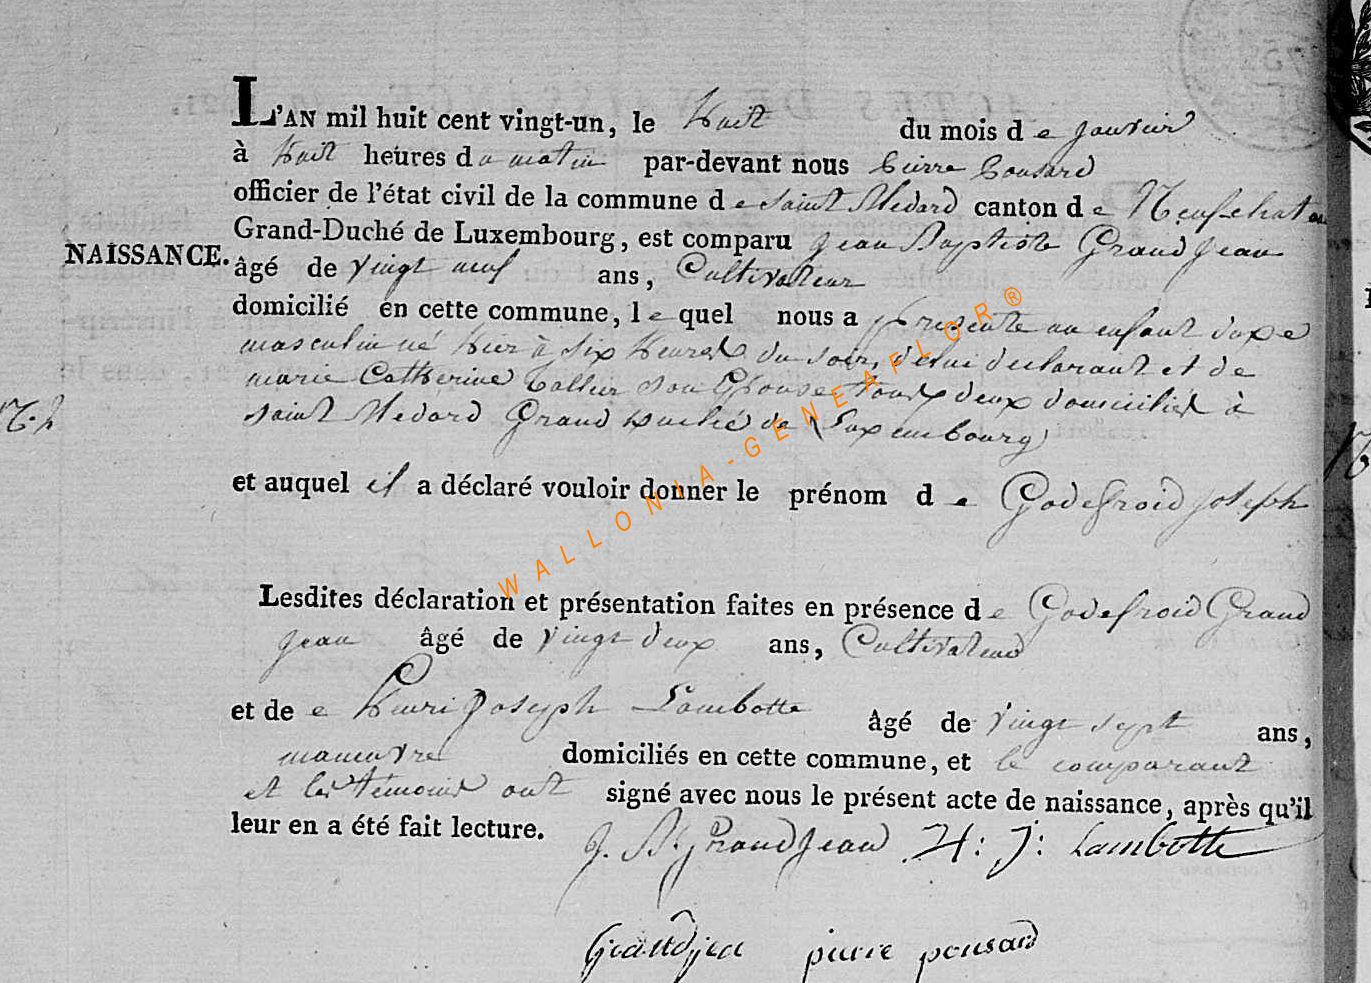 L'AN mil huit cent vingt-un, le huit du mois de janvier
à huit heures du matin par-devant nous pierre ponsard
officier de l'état civil de la commune de saint Medard canton de Neufchateau
Grand-Duché de Luxembourg, est comparu jean Baptiste Grand jean
NAISSANCE. âgé de vingt neuf ans, Cultivateur
domicilié en cette commune, le quel nous a presente un enfant du sexe
masculin né hier à six heures du soir, de lui declarant et de
marie Catherine son Epouse tous deux domiciliés à
saint Medard Grand duché de Luxembourg
et auquel il a déclaré vouloir donner le prénom de Godefroid joseph
Lesdites déclaration et présentation faites en présence de Godefroid Grand
jean âgé de vingt deux ans, Cultivateur
et de Henri Joseph Lambotte âgé de vingt sept ans,
manœuvre domiciliés en cette commune, et le comparant
et les témoins ont signé avec nous le présent acte de naissance, après qu'il
leur en a été fait lecture.
J. Bt GrandJean H: J: Lambotte
Grandjea pierre ponsard
WALLONIA-GENEAFLOR®